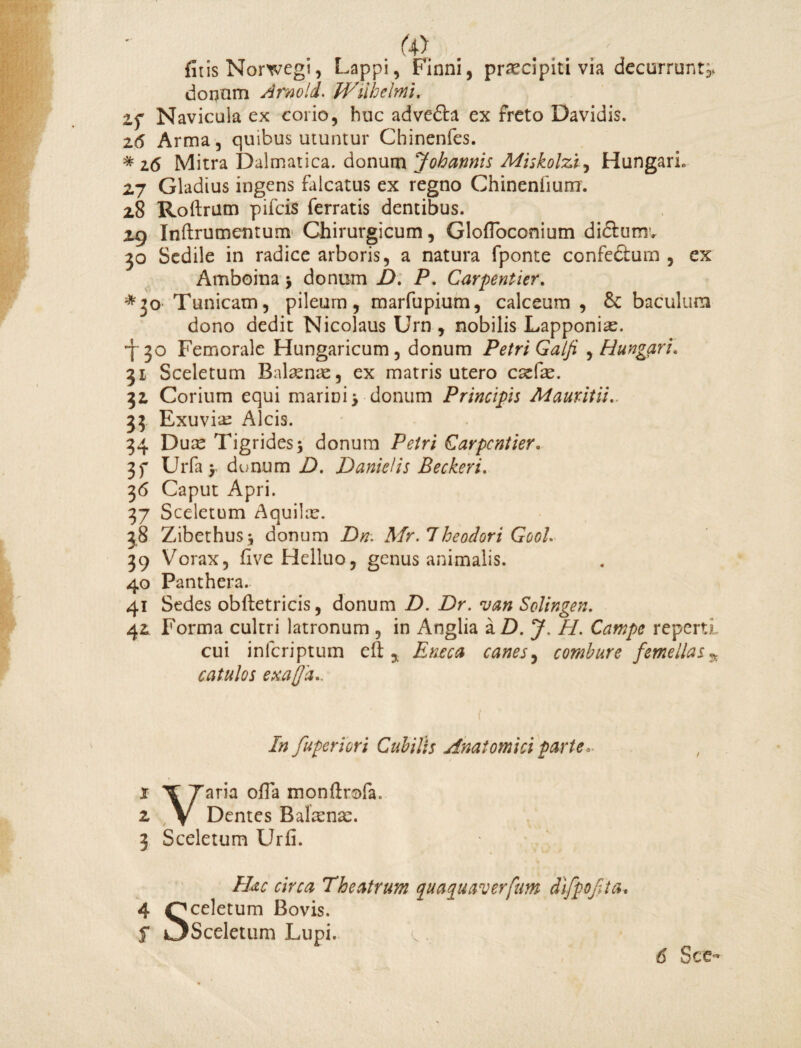 (4)
ſitis Norwegi, Lappi, Finni, præcipiti via decurrunt,
donum Arnold. Wilhelmi.
25 Navicula ex corio, huc advecta ex freto Davidis.
26 Arma, quibus utuntur Chinenſes.
* 26 Mitra Dalmatica. donum Johannis Miskolzi, Hungari.
27 Gladius ingens falcatus ex regno Chinenſium.
28 Roſtrum piſcis ferratis dentibus.
29 Inſtrumentum Chirurgicum, Gloſſoconium dictum.
30 Sedile in radice arboris, a natura ſponte confectum, ex
Amboina; donum D. P. Carpentier.
*30 Tunicam, pileum, marſupium, calceum, & baculum
dono dedit Nicolaus Urn, nobilis Lapponiæ.
†30 Femorale Hungaricum, donum Petri Galſi, Hungari.
31 Sceletum Balænæ, ex matris utero cæſæ.
32 Corium equi marini; donum Principis Mauritii.
33 Exuviæ Alcis.
34 Duæ Tigrides; donum Petri Carpentier.
35 Urſa; donum D. Danielis Beckeri.
36 Caput Apri.
37 Sceletum Aquilæ.
38 Zibethus; donum Dn. Mr. Theodori Gool.
39 Vorax, ſive Helluo, genus animalis.
40 Panthera.
41 Sedes obſtetricis, donum D. Dr. van Solingen.
42 Forma cultri latronum, in Anglia à D. J. H. Campe reperti
cui inſcriptum eſt, Eneca canes, combure femellas,
catulos exaſſa.
In ſuperiori Cubilis Anatomici parte.
1 Varia oſſa monſtroſa.
2 Dentes Balænæ.
3 Sceletum Urſi.
Hæc circa Theatrum quaquaverſum diſpoſita.
4 Sceletum Bovis.
5 Sceletum Lupi.
6 Sce-